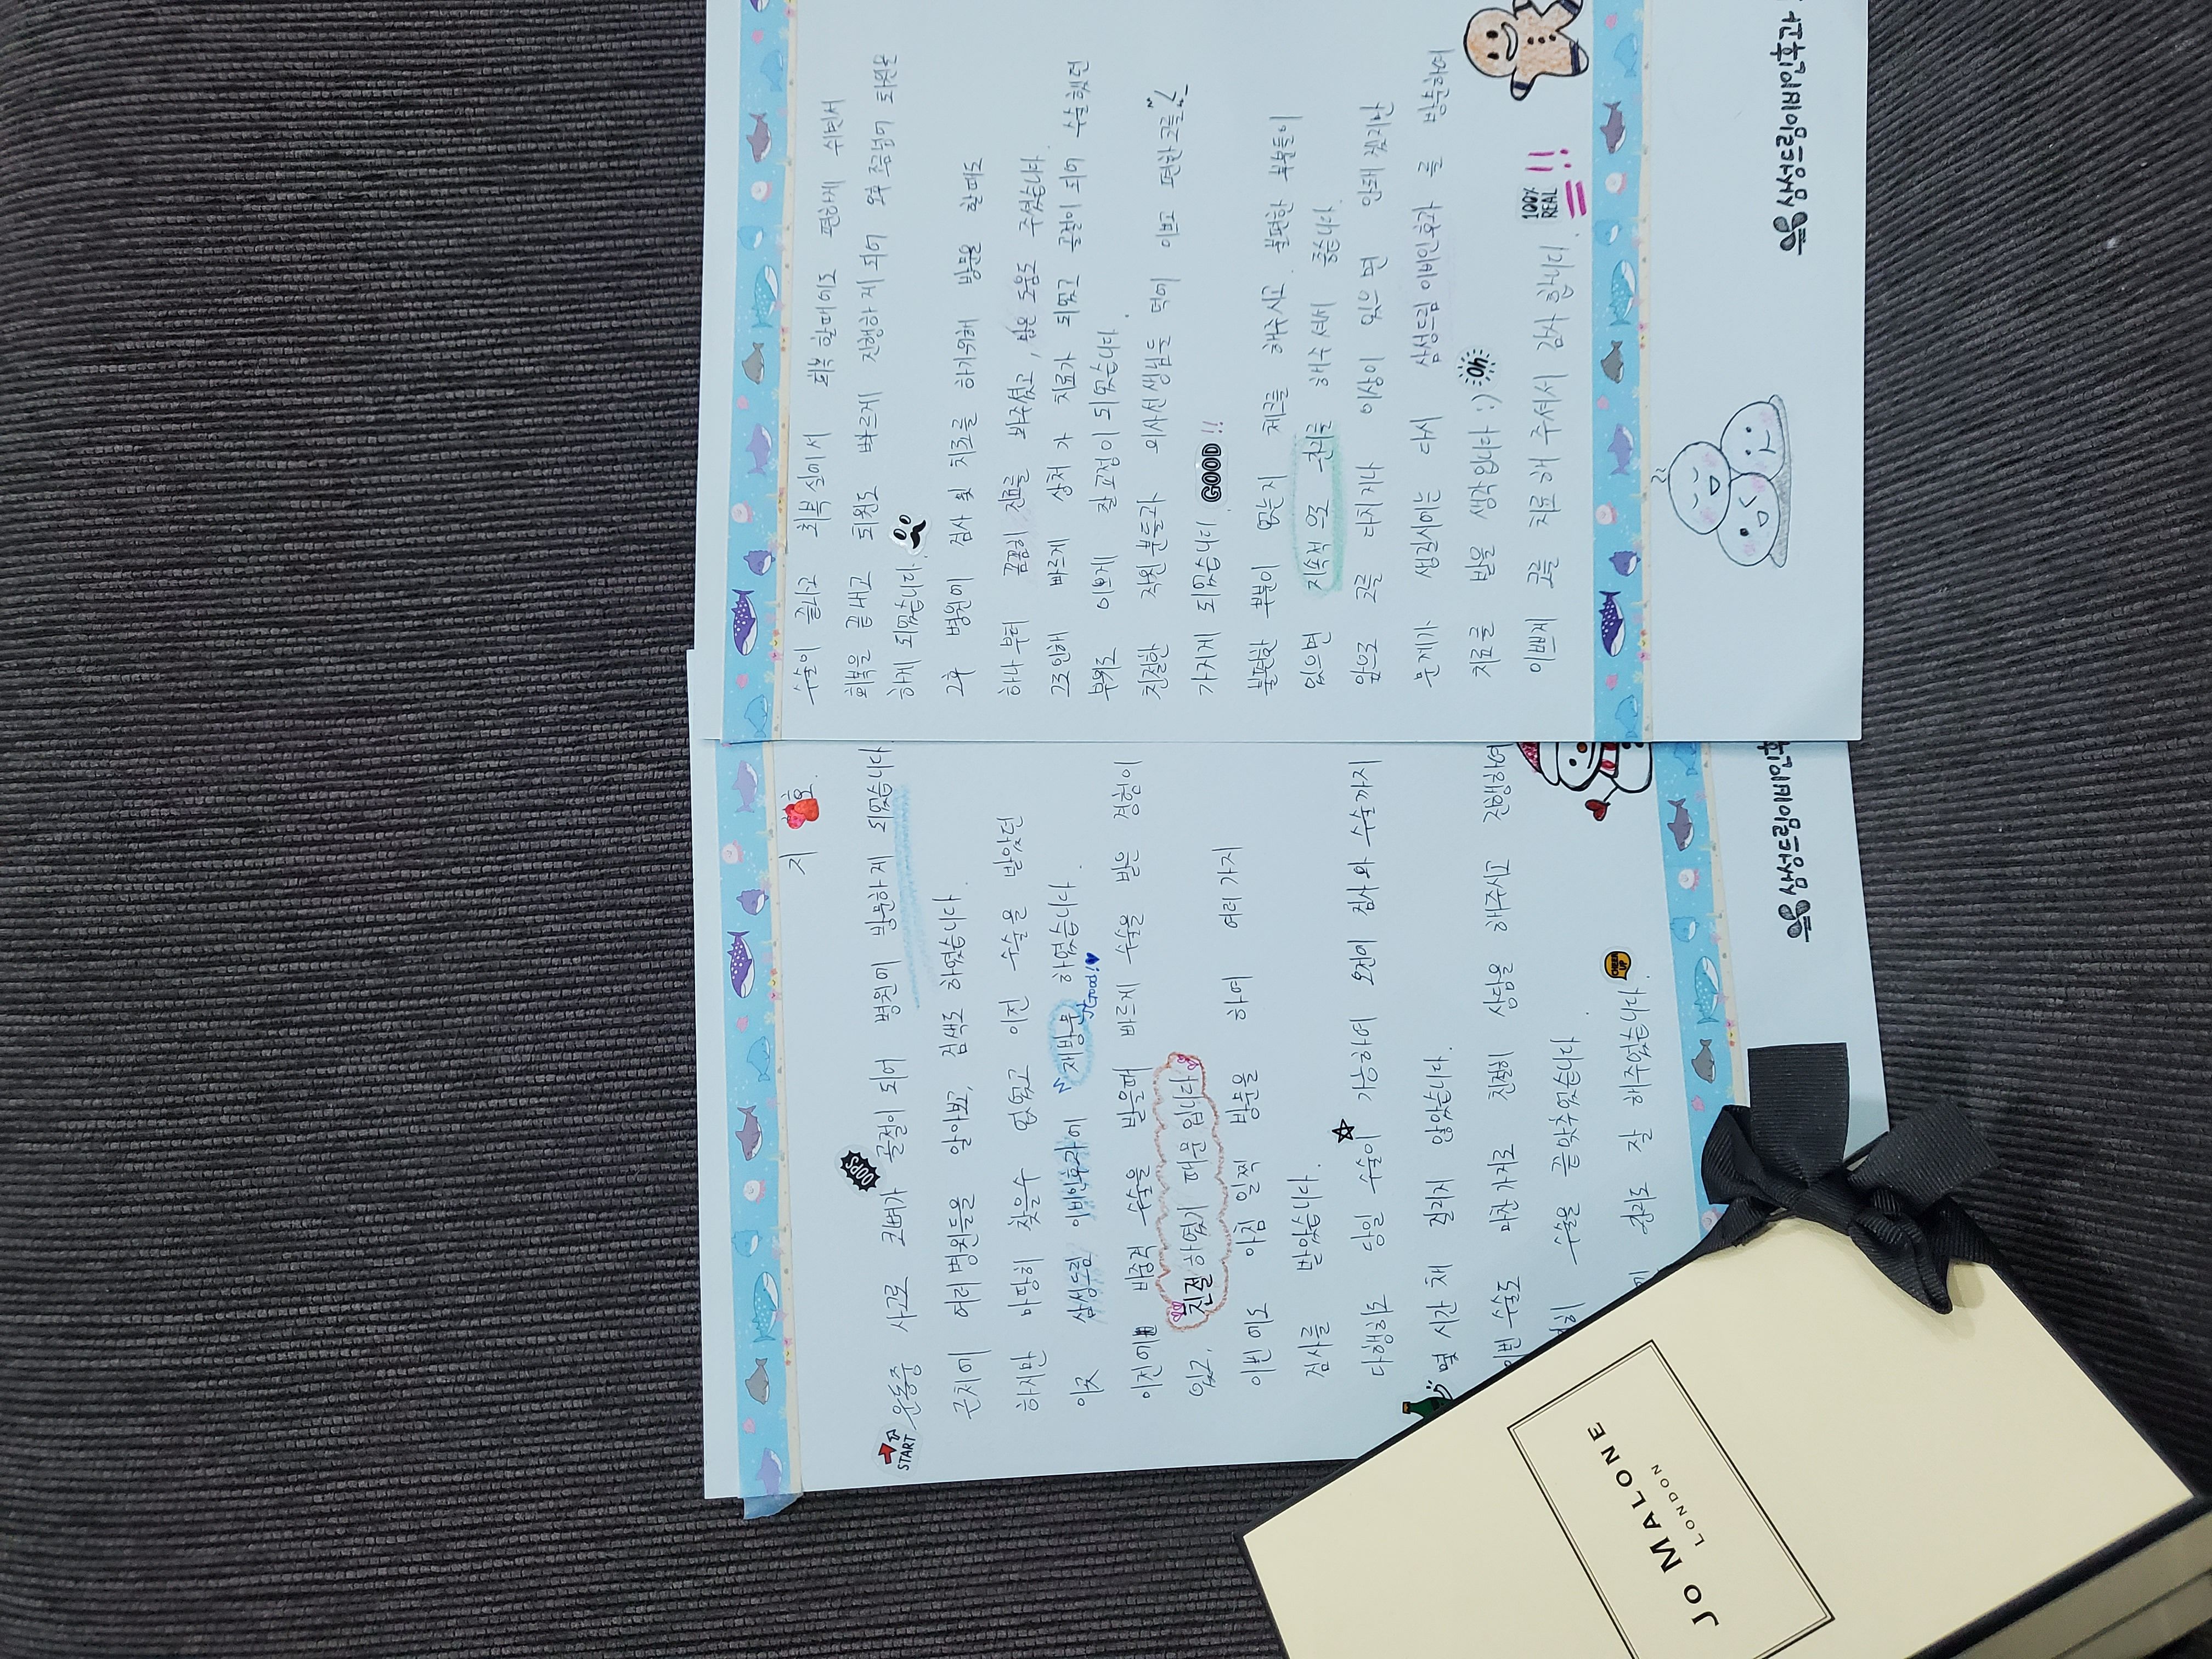 지 호
START
운동중 사고로 코뼈가 골절이 되어 병원에 방문하게 되었습니다
OOPS
근처에 여러병원들을 알아보고, 검색도 하였습니다.
하지만 마땅히 찾을수 없었고 이전 수술을 받았던
이곳 삼성드림 이비인후과에 "재방문" 하였습니다.
Good!♥
이전에 비중격 수술을 받을때 빠르게 수술을 받은 경험이
있고, 친절하였기 때문입니다.
이번에도 아침 일찍 방문을 하여 여러가지
검사를 받았습니다.
다행히도 당일 수술이 가능하여 오전에 검사와 수술까지
몇 시간 채 걸리지 않았습니다.
이번 수술도 마찬가지로 친절히 상담을 해주시고 진행하여
수술은 끝맞추었습니다
관리도 잘 해주었습니다.
CHEER UP
삼성드림이비인후
수술이 끝나고 회복실에서 회복 할때에도 편하게 쉬면서
회복을 끝내고 퇴원도 빠르게 진행하게 되어 오후 쯤넘어 퇴원을
하게 되었습니다.
그후 병원에 검사 및 치료를 하기위해 방문을 할때도
하나부터 꼼꼼히 진료를 봐주셨고, 많은 도움도 주셨습니다.
그로인해 빠르게 상처가 치료가 되었고 골절이 되어 수술했던
부위도 이쁘게 잘 교정이 되었습니다.
친절한 직원분들과 의사선생님들 덕에 이쁘고 편한 코를
가지게 되었습니다. GOOD !!
불편한 부분이 없는지 체크를 해주시고. 불편한 부분들이
있으면 지속적으로 관리를 해주셔서 좋습니다.
앞으로 코를 다치거나 이상이 있으면 안돼겠지만
문제가 생길시에는 다시 삼성드림 이비인후과를 방문하여
치료를 받을 생각입니다 :) Oh!
이쁘게 코를 치료해 주셔서 감사합니다. 100% REAL !!
삼성드림이비인후과
JO MALONE
LONDON